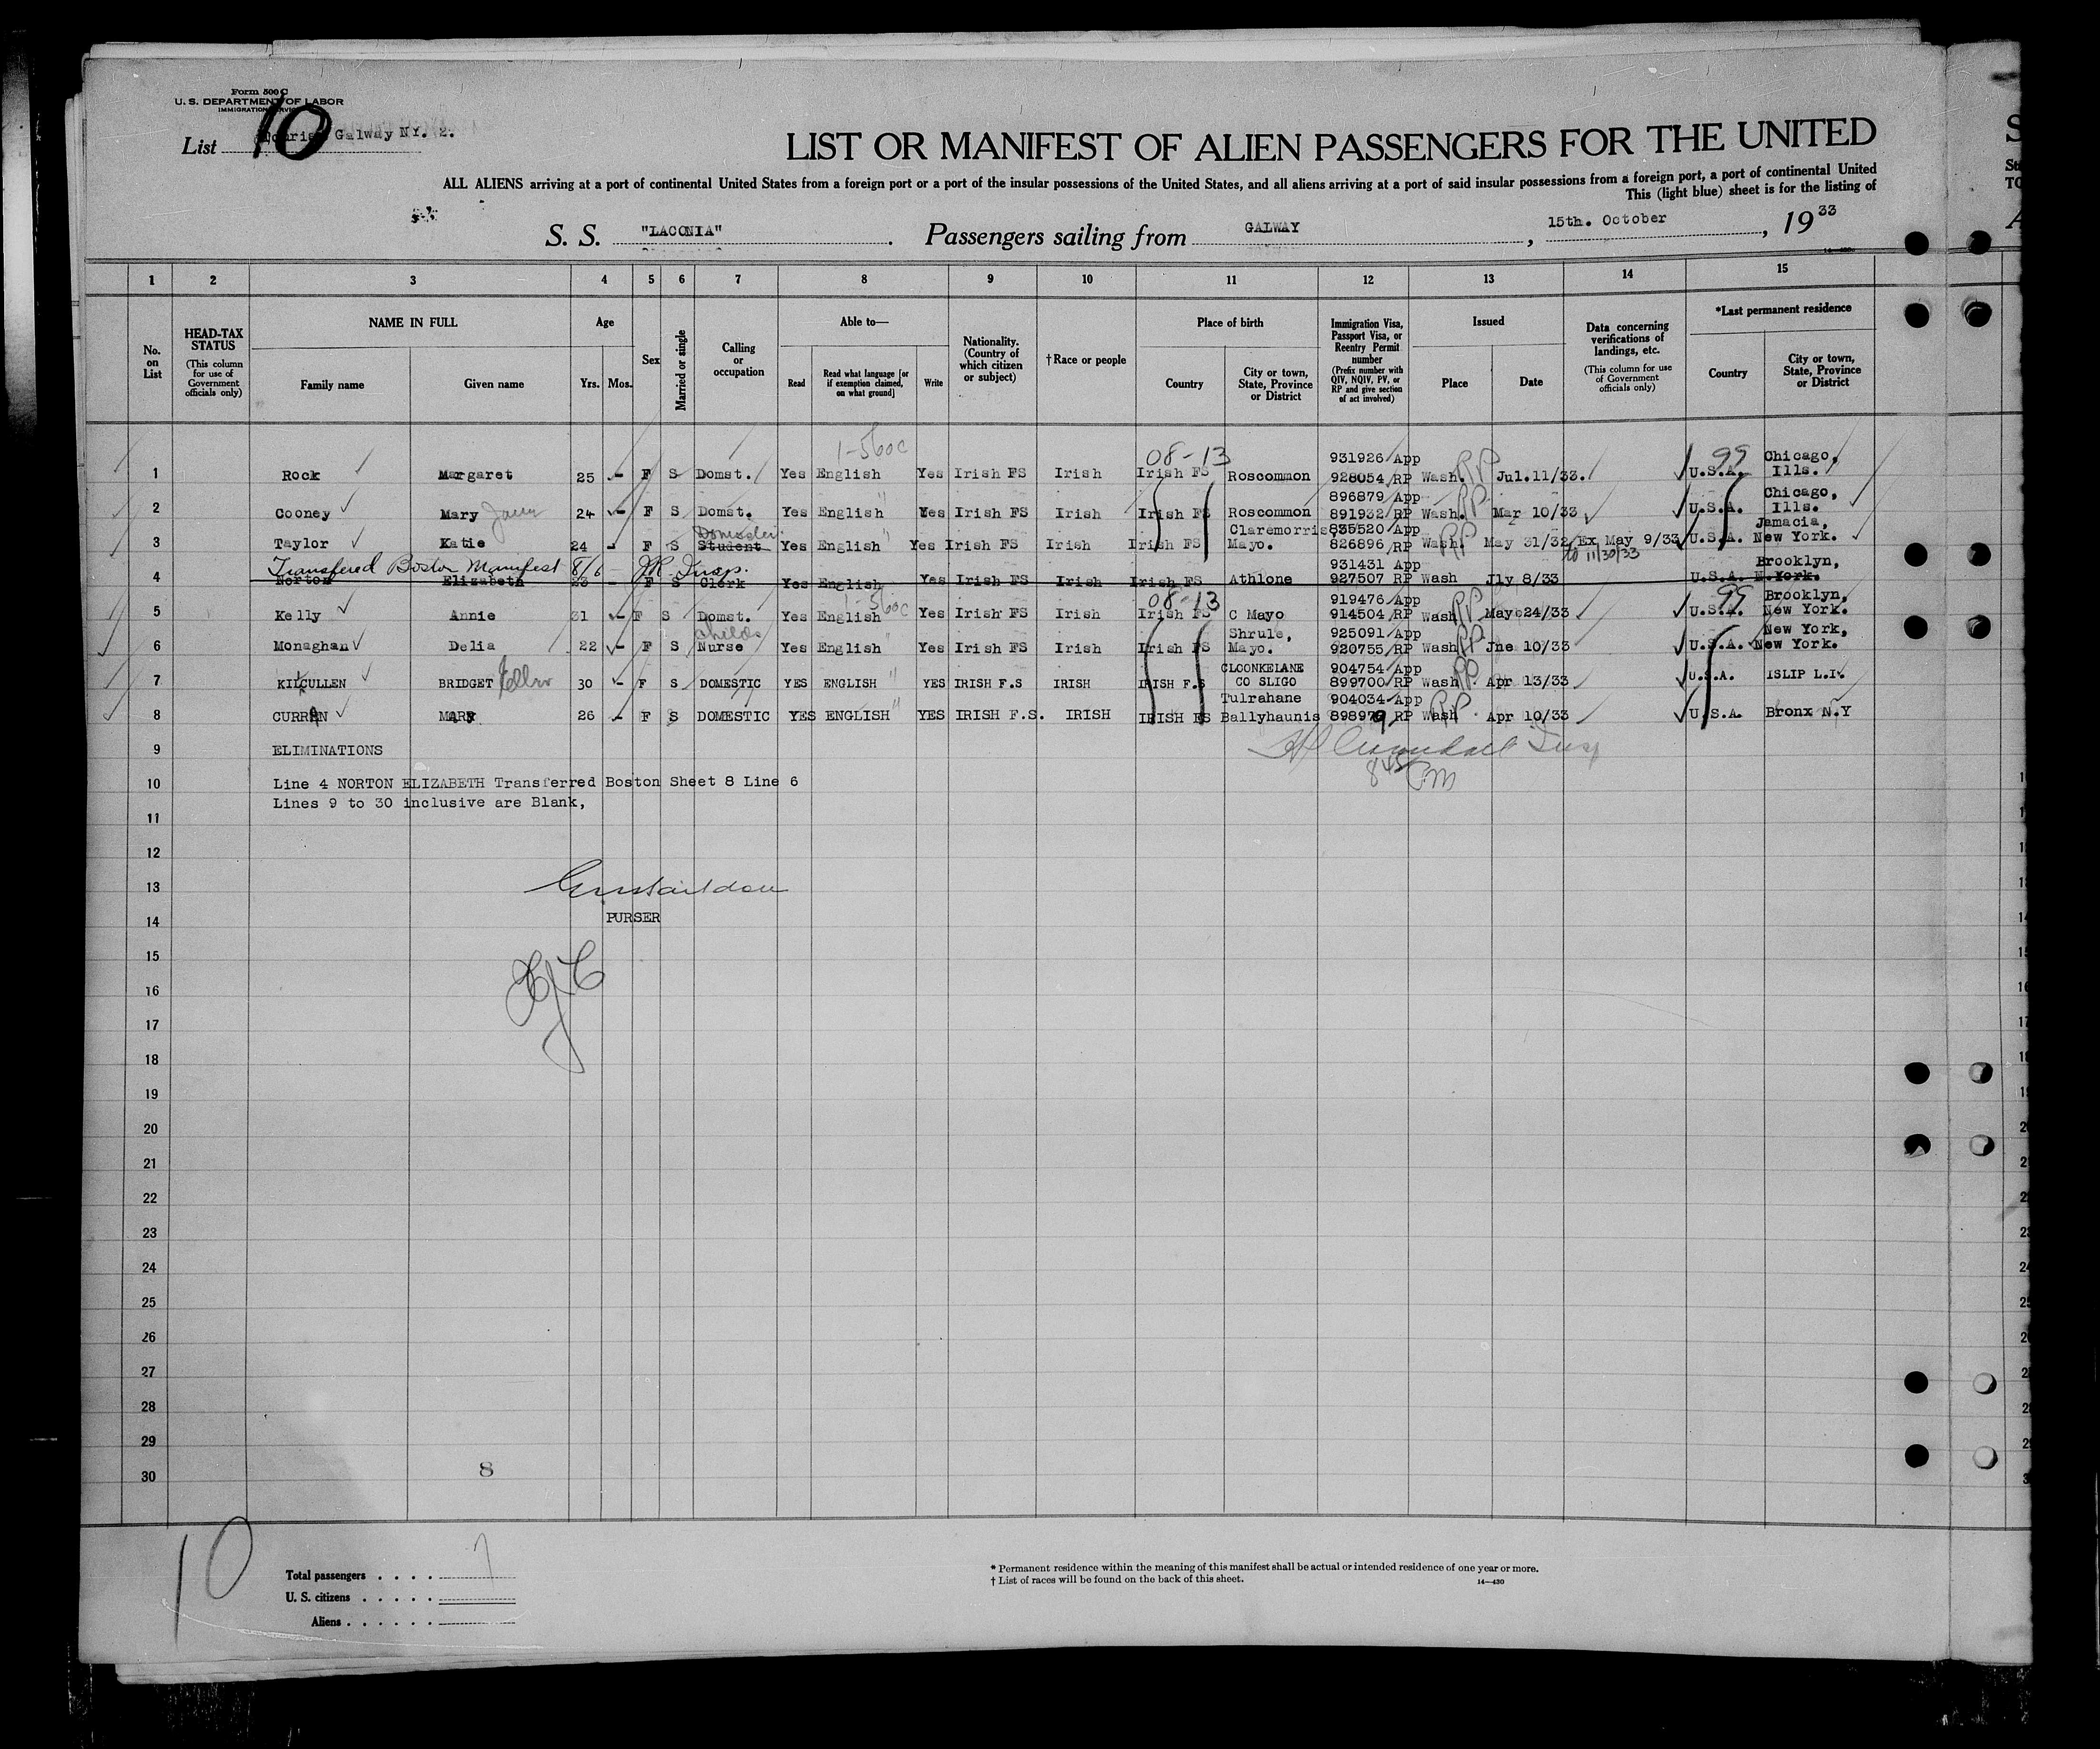 Form 500 C
U. S. DEPARTMENT OF LABOR
IMMIGRATION SERVICE
List 10 Tourist Galway NY. 2.
LIST OR MANIFEST OF ALIEN PASSENGERS FOR THE UNITED
ALL ALIENS arriving at a port of continental United States from a foreign port or a port of the insular possessions of the United States, and all aliens arriving at a port of said insular possessions from a foreign port, a port of continental United
This (light blue) sheet is for the listing of
S. S. "LACONIA". Passengers sailing from GALWAY, 15th. October, 1933
1 2 3 4 5 6 7 8 9 10 11 12 13 14 15
No. on List
HEAD-TAX STATUS (This column for use of Government officials only)
NAME IN FULL Family name Given name
Age Yrs. Mos.
Sex
Married or single
Calling or occupation
Able to— Read Read what language [or if exemption claimed, on what ground] Write
Nationality. (Country of which citizen or subject)
†Race or people
Place of birth Country City or town, State, Province or District
Immigration Visa, Passport Visa, or Reentry Permit number (Prefix number with QIV, NQIV, PV, or RP and give section of act involved)
Issued Place Date
Data concerning verifications of landings, etc. (This column for use of Government officials only)
*Last permanent residence Country City or town, State, Province or District
1-560c 08-13 931926 App 99 Chicago,
1 Rock Margaret 25 - F S Domst. Yes English Yes Irish FS Irish Irish FS Roscommon 928054 RP Wash. RP Jul.11/33. U.S.A. Ills.
896879 App Chicago,
2 Cooney Mary Jane 24 - F S Domst. Yes English " Yes Irish FS Irish Irish FS Roscommon 891932 RP Wash. RP Mar 10/33 U.S.A. Ills.
Domestic Claremorris, 835520 App Jamacia,
3 Taylor Katie 24 - F S Student Yes English " Yes Irish FS Irish Irish FS Mayo. 826896 RP Wash. RP May 31/32 Ex May 9/33 U.S.A. New York.
to 11/30/33
Transfered Boston Manifest 8/6 JR Insp. 931431 App Brooklyn,
4 Norton Elizabeth 23 - F S Clerk Yes English Yes Irish FS Irish Irish FS Athlone 927507 RP Wash Jly 8/33 U.S.A. N.York.
1-560c 08-13 919476 App 99 Brooklyn,
5 Kelly Annie 31 - F S Domst. Yes English Yes Irish FS Irish Irish FS C Mayo 914504 RP Wash RP May 24/33 U.S.A. New York.
Childs Shrule, 925091 App New York,
6 Monaghan Delia 22 - F S Nurse Yes English " Yes Irish FS Irish Irish FS Mayo. 920755 RP Wash RP Jne 10/33 U.S.A. New York.
CLOONKELANE 904754 App
7 KILCULLEN BRIDGET Ellen 30 - F S DOMESTIC YES ENGLISH " YES IRISH F.S IRISH IRISH F.S CO SLIGO 899700 RP Wash RP. Apr 13/33 U.S.A. ISLIP L.I.
Tulrahane 904034 App
8 CURRAN MARY 26 - F S DOMESTIC YES ENGLISH " YES IRISH F.S. IRISH IRISH FS Ballyhaunis 898979 RP Wash RP. Apr 10/33 U.S.A. Bronx N.Y
9 ELIMINATIONS
845 PM
10 Line 4 NORTON ELIZABETH Transferred Boston Sheet 8 Line 6
Lines 9 to 30 inclusive are Blank,
11
12
13
14 PURSER
15
16
17
18
19
20
21
22
23
24
25
26
27
28
29
30
8
10
Total passengers . . . . 7
U. S. citizens . . . . .
Aliens . . . . . .
* Permanent residence within the meaning of this manifest shall be actual or intended residence of one year or more.
† List of races will be found on the back of this sheet.
14—430